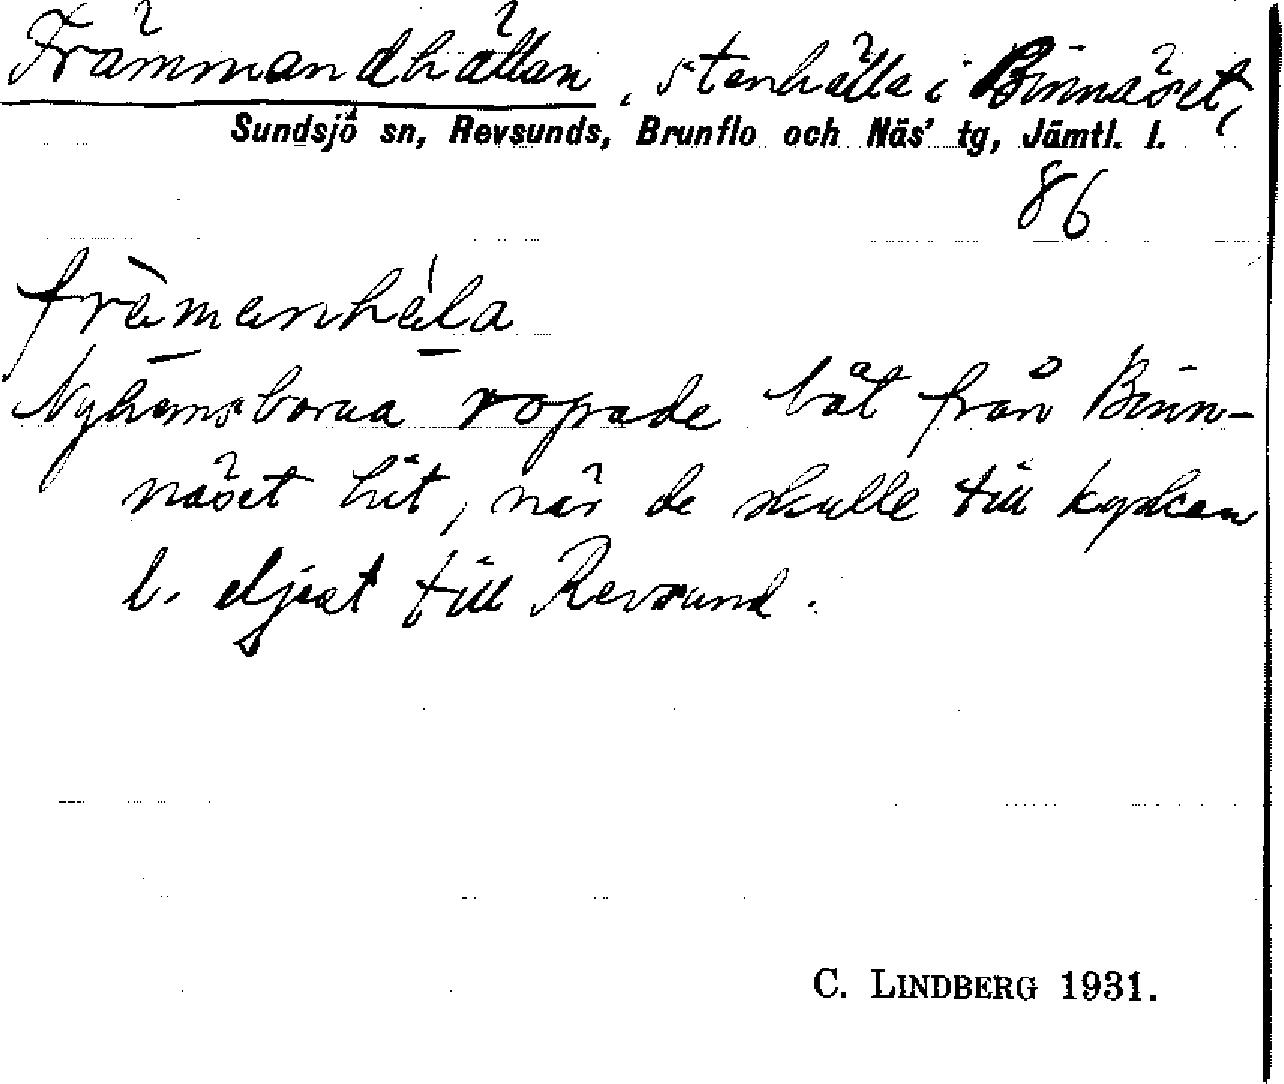 Främmandhällan, stenhälla i Binnäset,
Sundsjö sn, Revsunds, Brunflo och Näs' tg, Jämtl. l.
86
främanhäla
Nyhemsborna ropade båt från Binn-
näset hit, när de skulle till kyrkan
l. eljest till Revsund.
C. LINDBERG 1931.